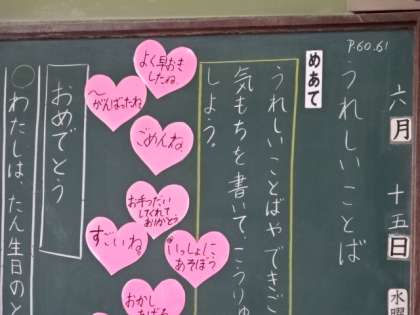 六月十五日水曜
P.60.61
うれしいことば
めあて
うれしいことばやできご
気もちを書いて、こうりゅ
しよう。
よく早おき
したね
〜がんばったね
ごめんね
お手つだい
してくれて
ありがとう
すごいね。
いっしょに
あそぼう
おかし
おめでとう
わたしは、たん生日のと